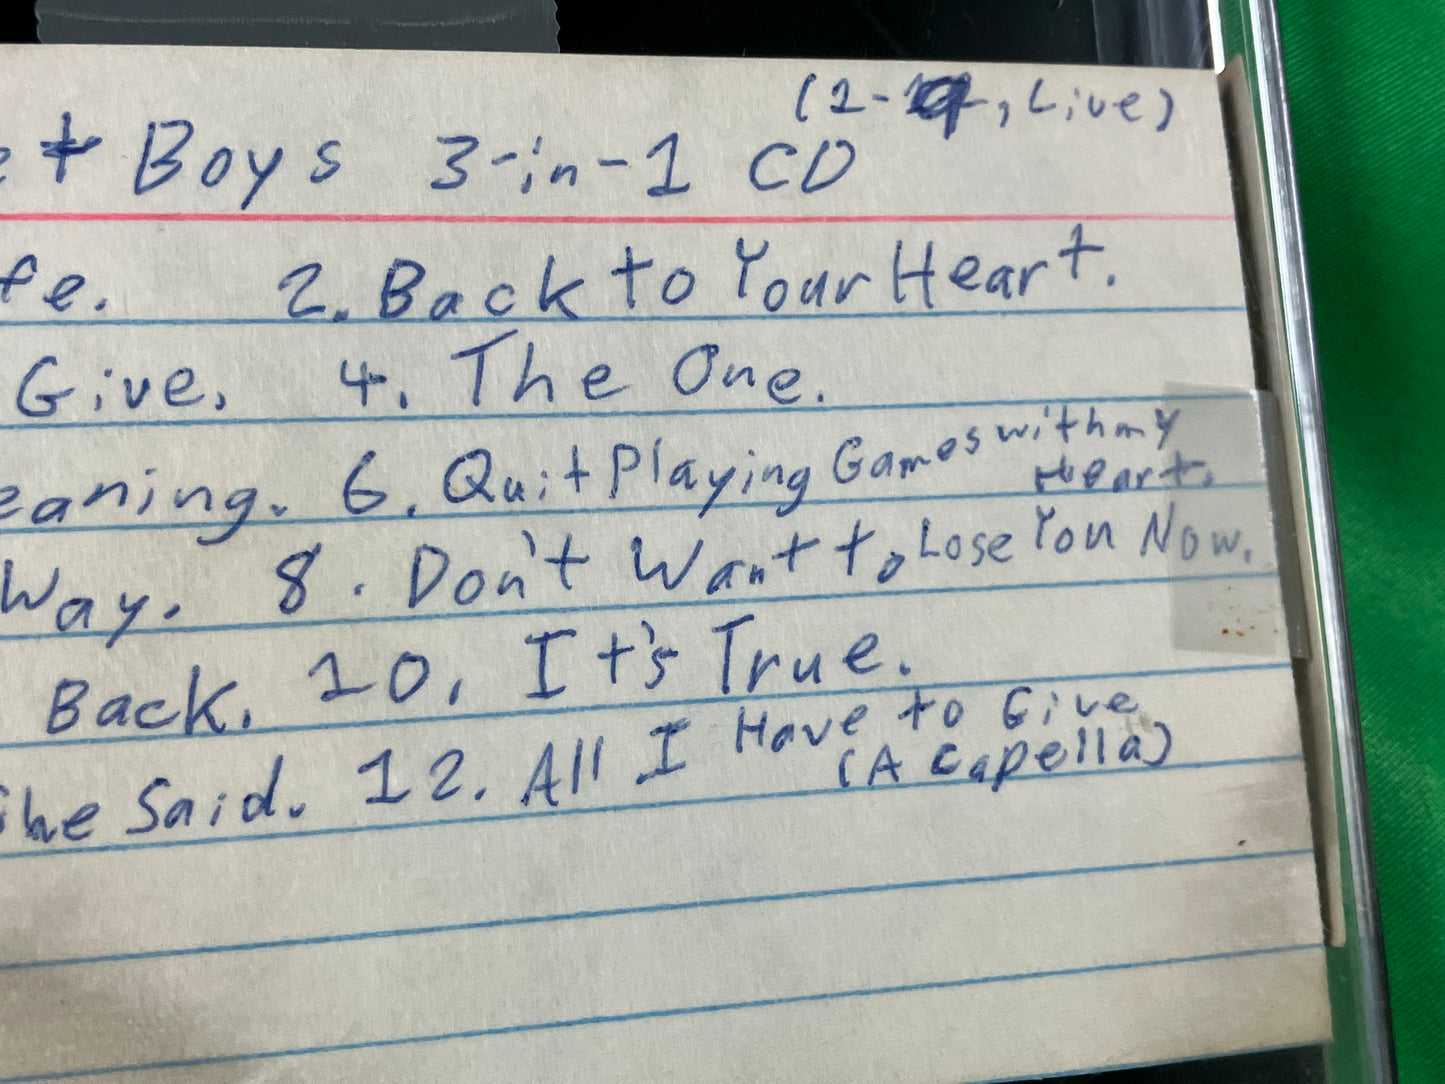 (1- , Live)
et Boys 3-in-1 CD
fe. 2. Back to Your Heart.
Give. 4. The One.
eaning. 6. Quit Playing Games with my
Heart.
Way. 8. Don't Want to Lose You Now.
Back. 10. It's True.
She Said. 12. All I Have to Give
(A Capella)